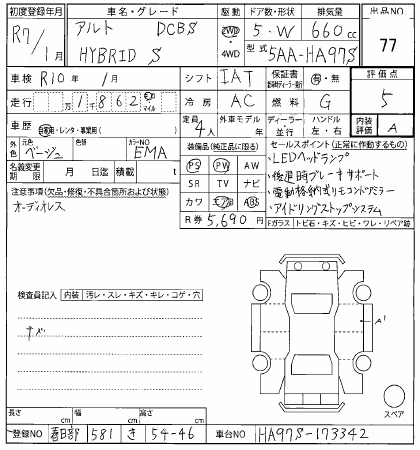 初度登録年月 車名・グレード 駆動 ドア数・形状 排気量 出品NO
R7/1月 アルト DCBS 2WD 5・W 660cc 77
HYBRID S 4WD 型式 5AA-HA97S
車検 R10年 /月 シフト IAT 保証書 有・無 評価点
走行 万1862 マイル 冷房 AC 燃料 G 5
車歴 自家用・レンタ・事業用( ) 定員 4人 外車モデル 年 ディーラー 並行 ハンドル 左・右 内装 A
外色 元色 ベージュ 色替 カラーNO EMA 装備品(純正品に限る) セールスポイント(正常に作動するもの)
名義変更期限 月 日迄 積載 t PS PW AW ・LEDヘッドランプ
注意事項(欠品・修復・不具合箇所および状態) SR TV ナビ ・後退時ブレーキサポート
オーディオレス カワ エアB ABS ・電動格納式リモコンドアミラー
R券 5,690円 ・アイドリングストップシステム
Fガラス トビ石・キズ・ヒビ・ワレ・リペア跡
検査員記入 内装 汚レ・スレ・キズ・キレ・コゲ・穴
キズ
A1
スペア
長さ cm 幅 cm 高さ cm
登録NO 春日部 581 き 54-46 車台NO HA97S-173342